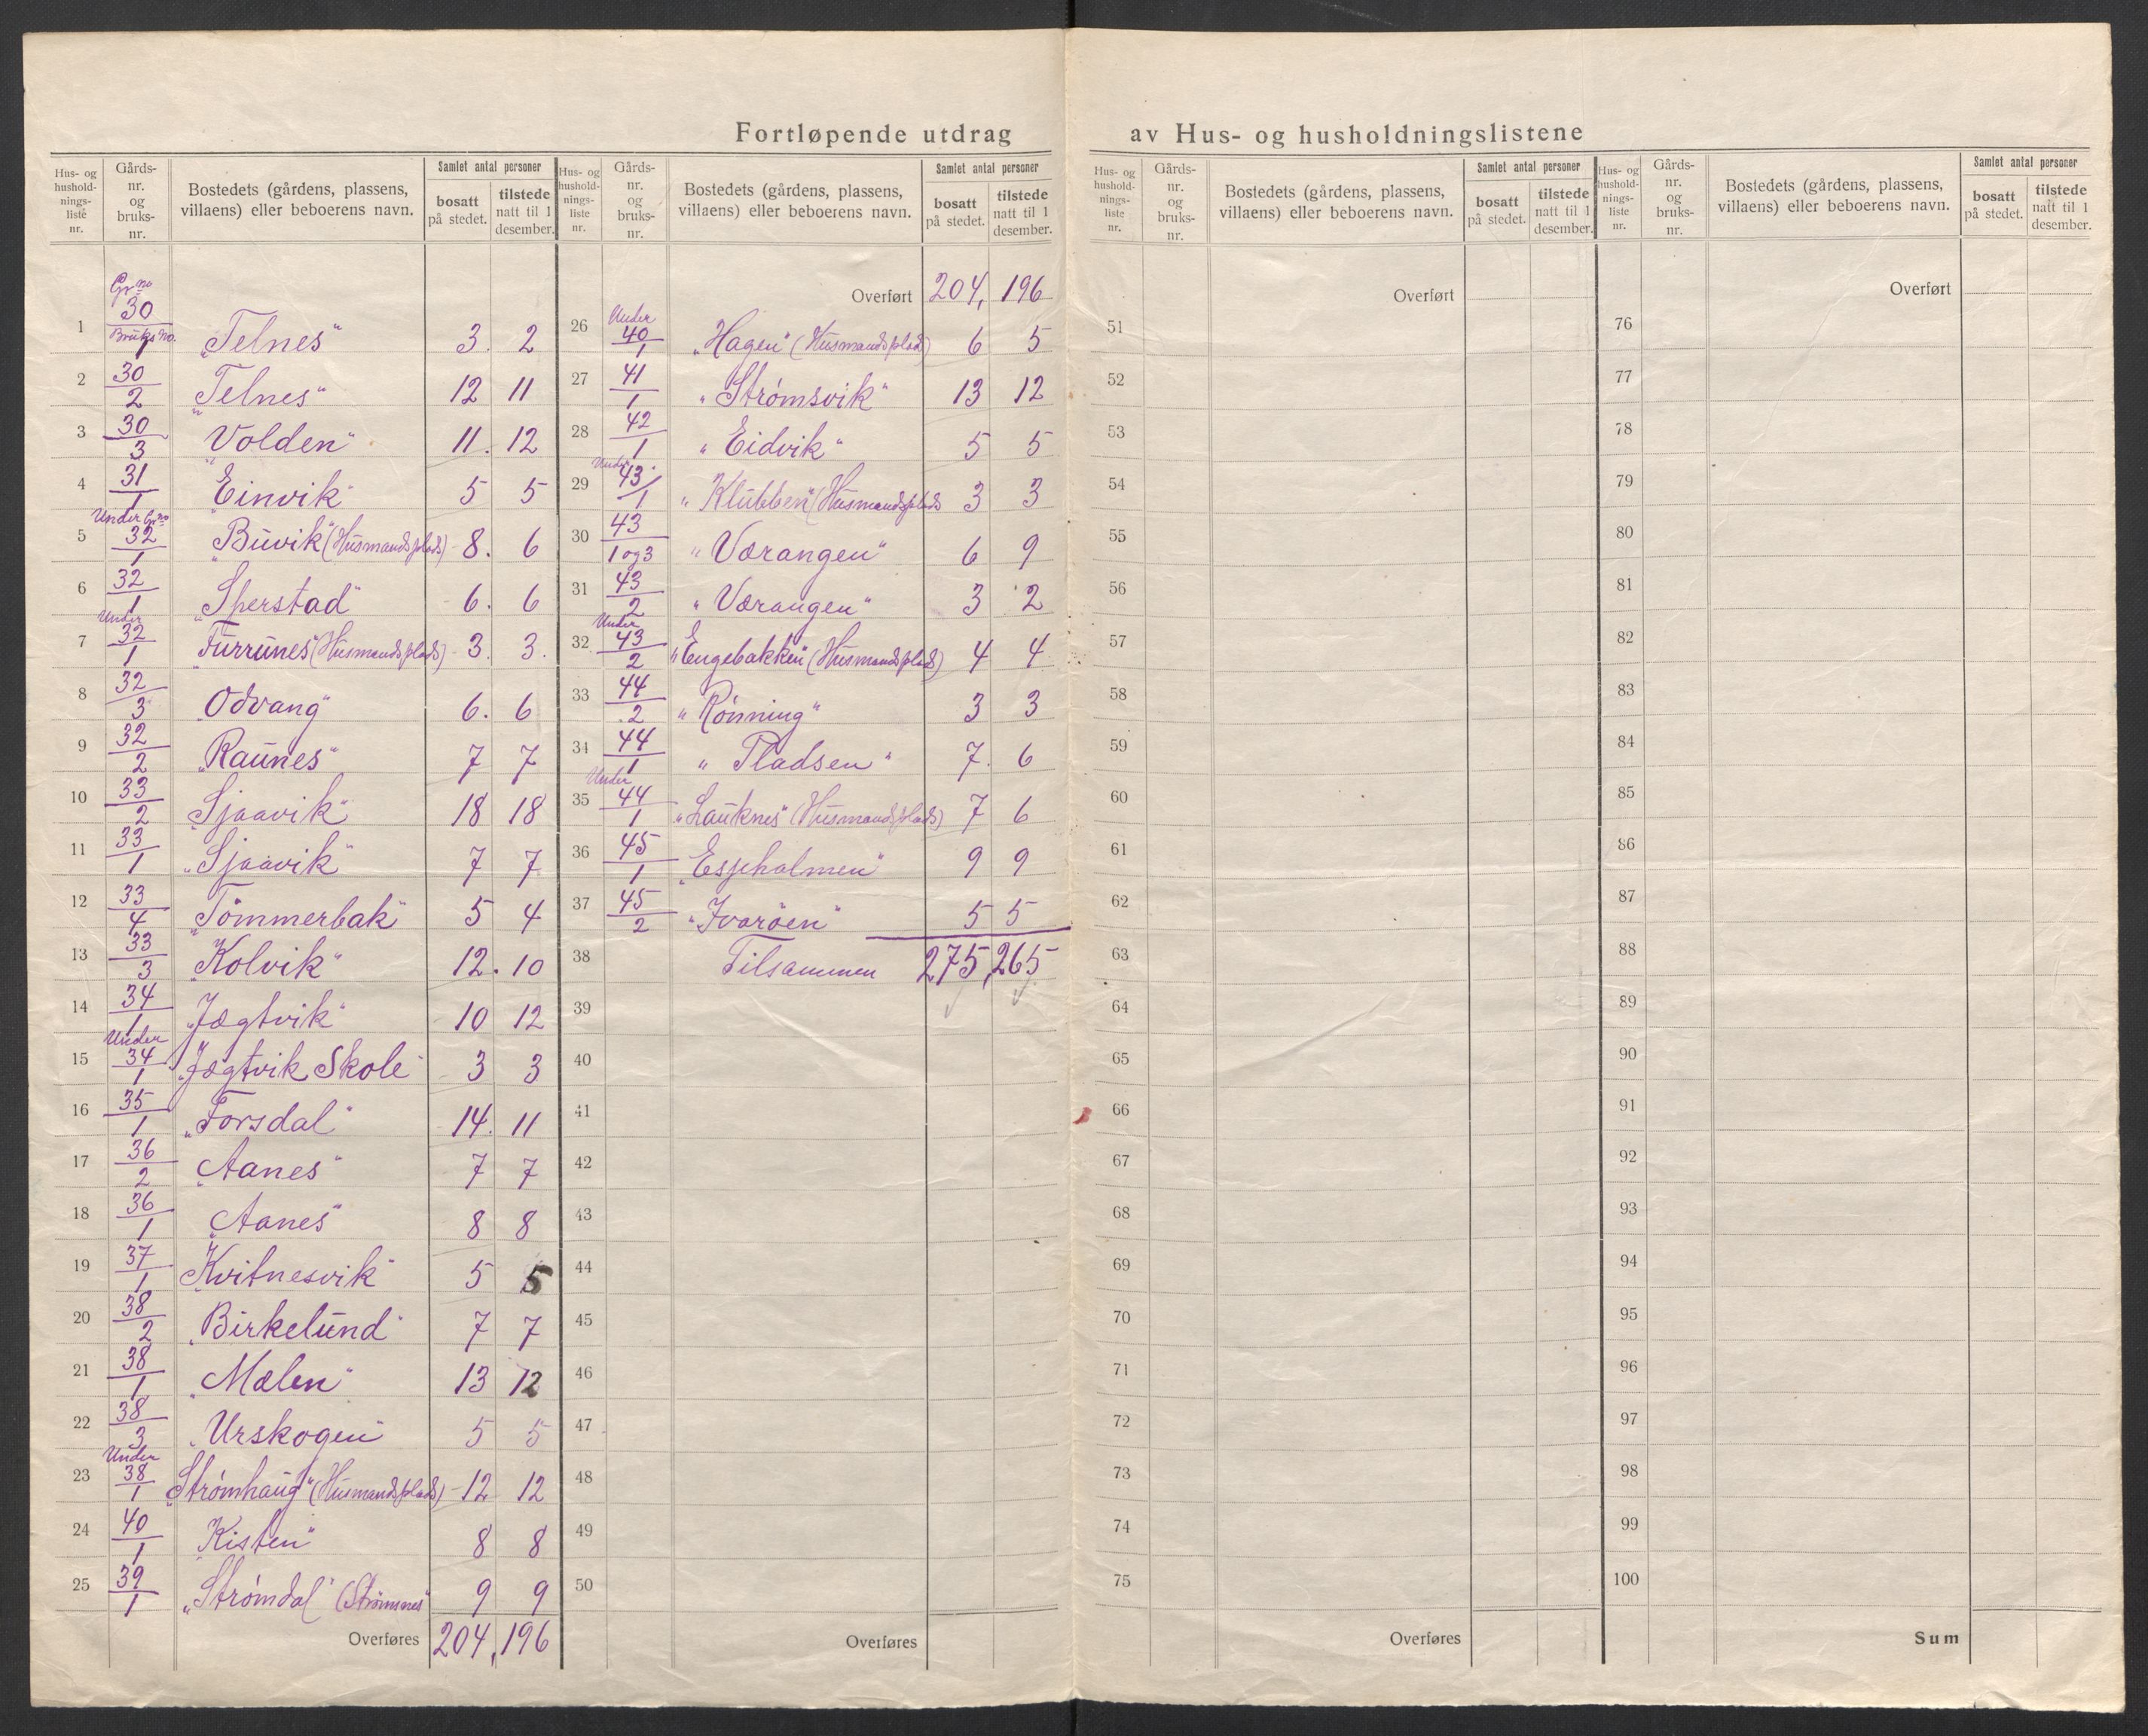 Fortløpende utdrag av Hus- og husholdningslistene
Hus- og hushold-nings-liste nr. | Gårds-nr. og bruks-nr. | Bostedets (gårdens, plassens, villaens) eller beboerens navn. | Samlet antal personer | bosatt på stedet. | tilstede natt til 1 desember.
Gr no
1 30/Bruks No. 1 „Telnes“ 3. 2
2 30/2 „Telnes“ 12 11
3 30/3 „Volden“ 11. 12
4 31/1 „Einvik“ 5 5
5 Under Gr no 32/1 „Buvik“ (Husmandsplads) 8. 6
6 32/1 „Sperstad“ 6. 6
7 Under 32/1 „Furrunes“ (Husmandsplads) 3. 3.
8 32/3 „Odvang“ 6. 6
9 32/2 „Raunes“ 7 7
10 33/2 „Sjaavik“ 18 18
11 33/1 „Sjaavik“ 7 7
12 33/4 „Tømmerbak“ 5 4
13 33/3 „Kolvik“ 12. 10
14 34/1 „Jægtvik“ 10 12
15 Under 34/1 „Jægtvik Skole 3 3
16 35/1 „Forsdal“ 14. 11
17 36/2 „Aanes“ 7 7
18 36/1 „Aanes“ 8 8
19 37/1 „Kvitnesvik“ 5 5
20 38/2 „Birkelund“ 7 7
21 38/1 „Mælen“ 13 12
22 38/3 „Urskogen“ 5 5
23 Under 38/1 „Strømhaug“ (Husmandsplads) 12 12
24 40/1 „Kisten“ 8 8
25 39/1 „Strømdal“ (Strømsnes“ 9 9
Overføres 204, 196
Hus- og hushold-nings-liste nr. | Gårds-nr. og bruks-nr. | Bostedets (gårdens, plassens, villaens) eller beboerens navn. | Samlet antal personer | bosatt på stedet. | tilstede natt til 1 desember.
Overført 204, 196
26 Under 40/1 „Hagen“ (Husmandsplad) 6 5
27 41/1 „Strømsvik“ 13 12
28 42/1 „Eidvik“ 5 5
29 Under 43/1 „Klubben“ (Husmandsplads 3 3
30 43/1 og 3 „Værangen“ 6 9
31 43/2 „Værangen“ 3 2
32 Under 43/2 „Engebakken“ (Husmandsplads) 4 4
33 44/2 „Rønning“ 3 3
34 44/1 „Pladsen“ 7. 6
35 Under 44/1 „Lauknes“ (Husmandsplads) 7 6
36 45/1 „Espeholmen“ 9 9
37 45/2 „Ivarøen“ 5 5
38 Tilsammen 275, 265
39
40
41
42
43
44
45
46
47
48
49
50
Overføres
Hus- og hushold-nings-liste nr. | Gårds-nr. og bruks-nr. | Bostedets (gårdens, plassens, villaens) eller beboerens navn. | Samlet antal personer | bosatt på stedet. | tilstede natt til 1 desember.
Overført
51
52
53
54
55
56
57
58
59
60
61
62
63
64
65
66
67
68
69
70
71
72
73
74
75
Overføres
Hus- og hushold-nings-liste nr. | Gårds-nr. og bruks-nr. | Bostedets (gårdens, plassens, villaens) eller beboerens navn. | Samlet antal personer | bosatt på stedet. | tilstede natt til 1 desember.
Overført
76
77
78
79
80
81
82
83
84
85
86
87
88
89
90
91
92
93
94
95
96
97
98
99
100
Sum